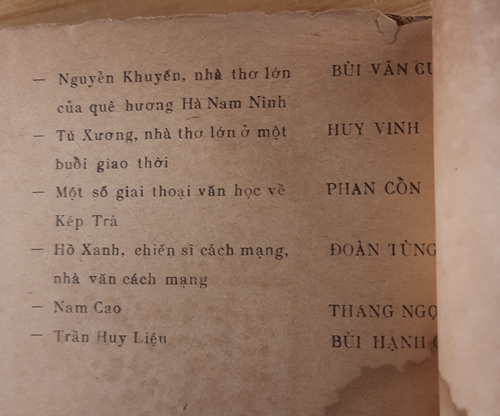 — Nguyễn Khuyến, nhà thơ lớn BÙI VĂN
của quê hương Hà Nam Ninh
— Tú Xương, nhà thơ lớn ở một HUY VINH
buổi giao thời
— Một số giai thoại văn học về PHAN CỒN
Kép Trà
— Hồ Xanh, chiến sĩ cách mạng, ĐOÀN TÙNG
nhà văn cách mạng
— Nam Cao THANG
— Trần Huy Liệu BÙI HẠNH